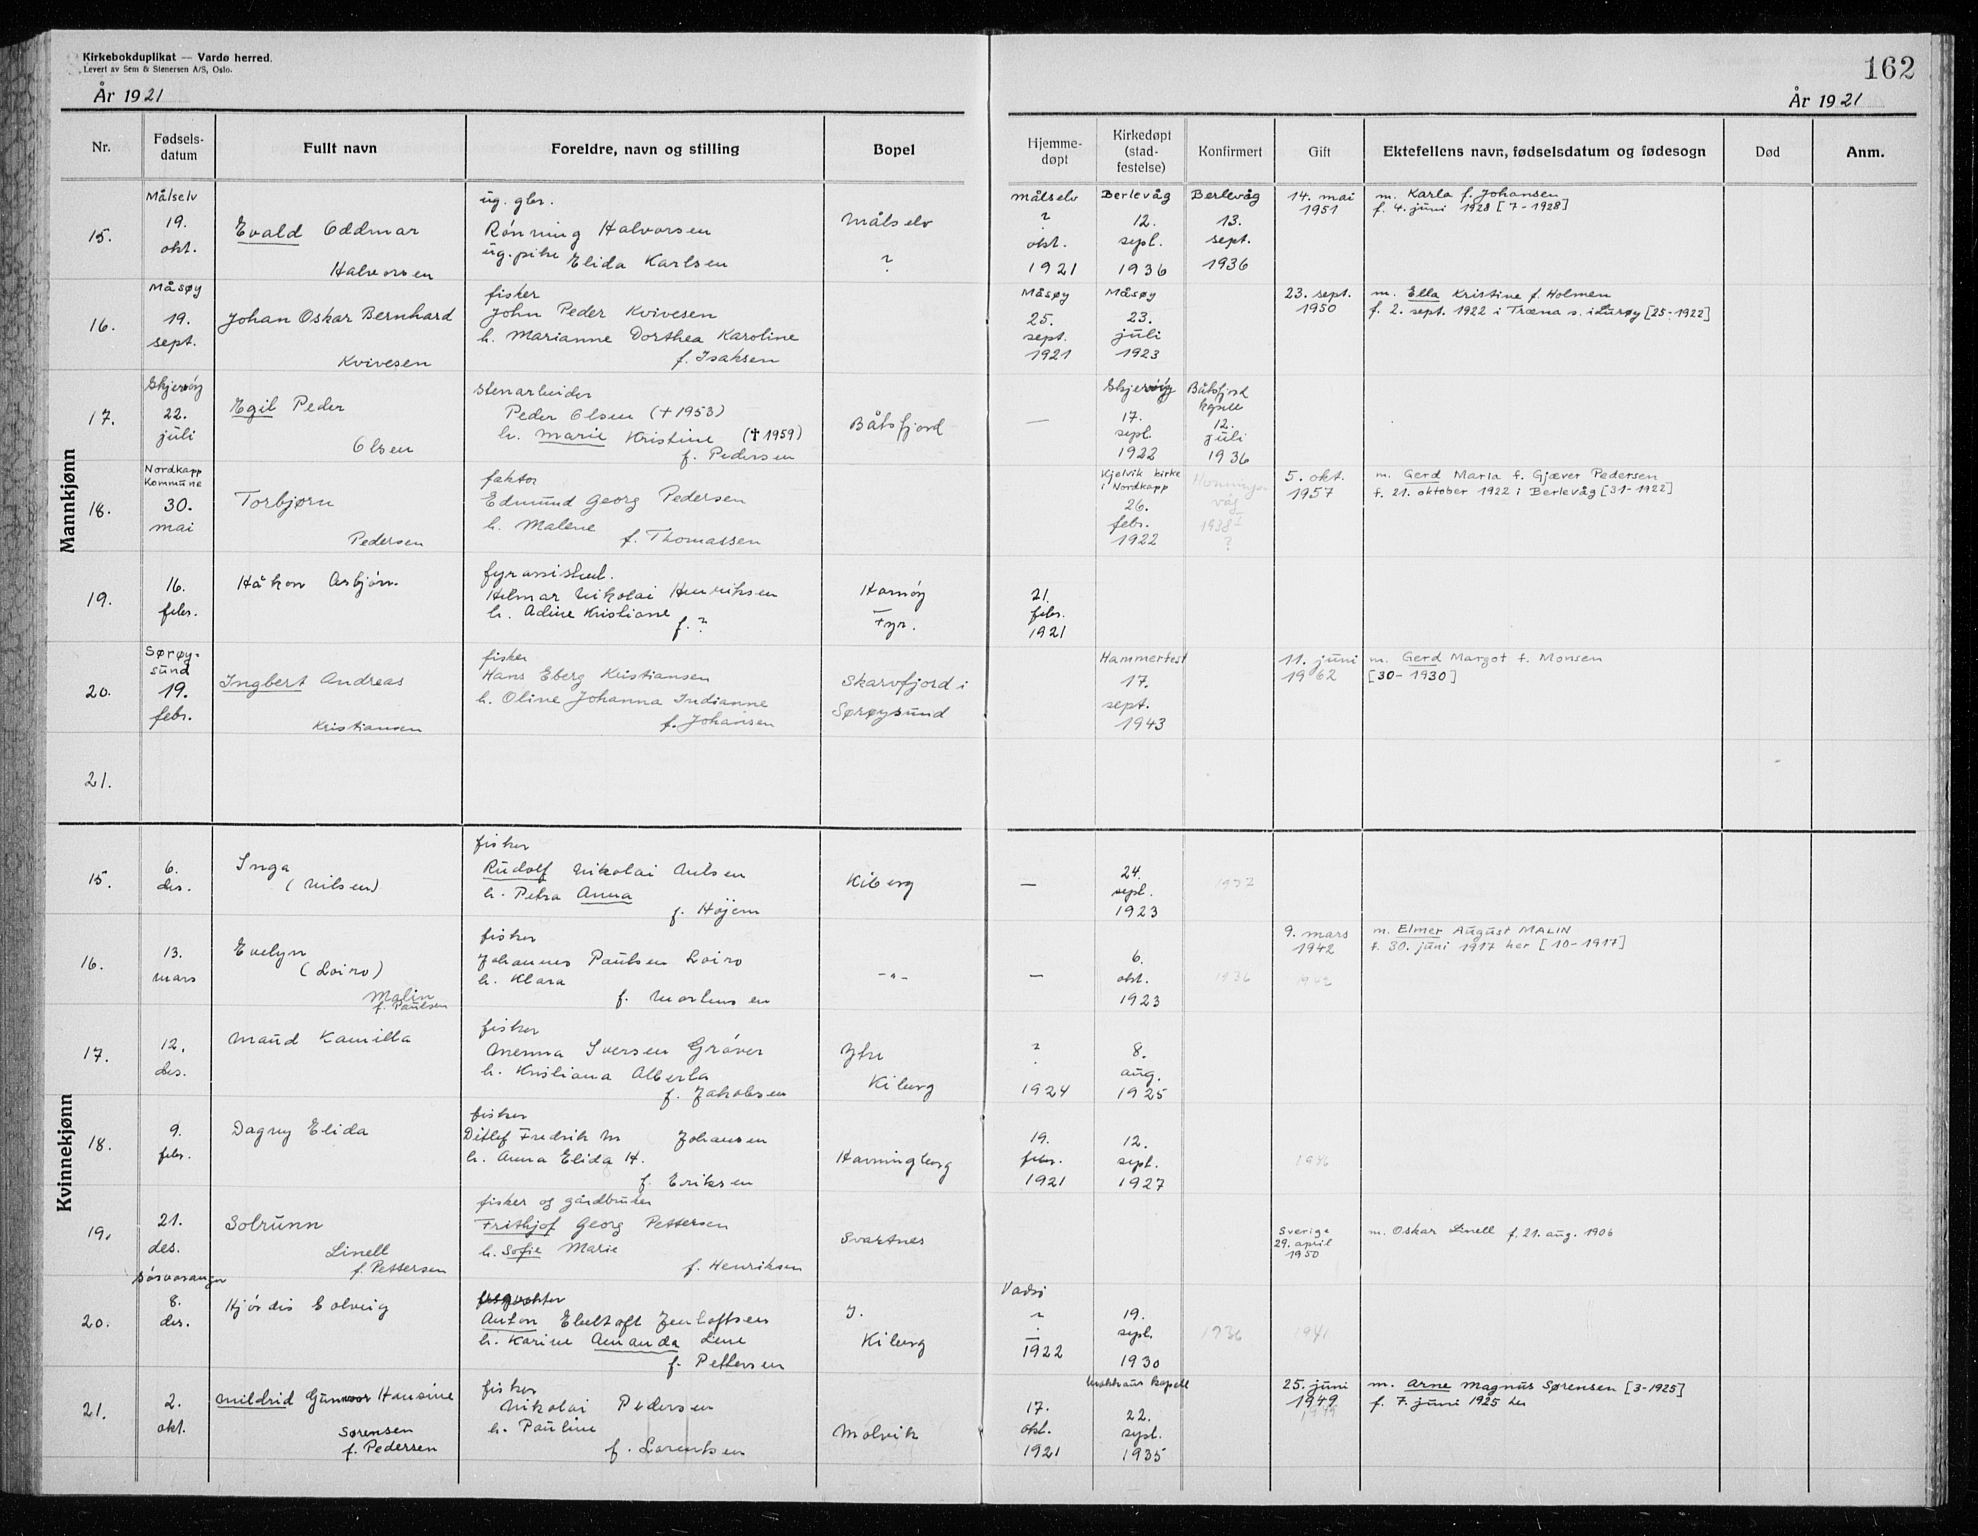 Kirkebokduplikat — Vardø herred.
Levert av Sem & Stenersen A/S, Oslo.
År 1921
162
År 1921
Nr. Fødsels-datum Fullt navn Foreldre, navn og stilling Bopel Hjemme-døpt Kirkedøpt (stad-festelse) Konfirmert Gift Ektefellens navn, fødselsdatum og fødesogn Død Anm.
Mannkjønn
15.
Målselv
19.
okt.
Evald Oddmar
Halvorsen
ug. gbr.
Rønning Halvorsen
ug. pike Elida Karlsen
Målselv
?
Målselv
?
okt.
1921
Berlevåg
12.
sept.
1936
Berlevåg
13.
sept.
1936
14. mai
1951
m. Karla f. Johansen
f. 4. juni 1928 [7-1928]
16.
Måsøy
19.
sept.
Johan Oskar Bernhard
Kvivesen
fisker
John Peder Kvivesen
h. Marianne Dorthea Karoline
f. Isaksen
Måsøy
25.
sept.
1921
Måsøy
23.
juli
1923
23. sept.
1950
m. Ella Kristine f. Holmen
f. 2. sept. 1922 i Træna s. i Lurøy [25-1922]
17.
Skjervøy
22.
juli
Egil Peder
Olsen
stenarbeider
Peder Olsen (+1953)
h. Marie Kristine (+1959)
f. Pedersen
Båtsfjord
—
Skjervøy
17.
sept.
1922
Båtsfjord
kapell
12.
juli
1936
18.
Nordkapp
Kommune
30.
mai
Torbjørn
Pedersen
faktor
Edmund Georg Pedersen
h. Malene
f. Thomassen
Kjelvik kirke
i Nordkapp
26.
febr.
1922
Honnings
våg
1938
?
5. okt.
1957
m. Gerd Maria f. Gjæver Pedersen
f. 21. oktober 1922 i Berlevåg [31-1922]
19.
16.
febr.
Håkon Asbjørn.
fyrassistent.
Hilmar Nikolai Henriksen
h. Adine Kristiane
f. ?
Hornøy
Fyr.
21.
febr.
1921
20.
Sørøy-
sund
19.
febr.
Ingbert Andreas
Kristiansen
fisker
Hans Eberg Kristiansen
h. Oline Johanna Indianne
f. Johansen
Skarvfjord i
Sørøysund
Hammerfest
17.
sept.
1943
11. juni
1962
m. Gerd Margot f. Monsen
[30-1930]
21.
Kvinnekjønn
15.
6.
des.
Inga
(Nilsen)
fisker
Rudolf Nikolai Nilsen
h. Petra Anna
f. Højem
Kiberg
—
24.
sept.
1923
1937
16.
13.
mars
Evelyn
(Loiro)
Malin
f. Paulsen
fisker
Johannes Paulsen Loiro
h. Klara
f. Mortensen
-"-
—
6.
okt.
1923
1936
1942
9. mars
1942
m. Elmer August MALIN
f. 30. juni 1917 her [10-1917]
17.
12.
des.
Maud Kamilla
fisker
Menna Iversen Gräver
h. Kristiana Alberta
f. Jakobsen
Ytre
Kiberg
?
1924
8.
aug.
1925
18.
9.
febr.
Dagny Elida
fisker
Ditlef Fredrik M Johansen
h. Anna Elida H.
f. Eriksen
Havningberg
19.
febr.
1921
12.
sept.
1927
1946
19.
21.
des.
Solrunn
Linell
f. Pettersen
fisker og gårdbruker
Frithjof Georg Pettersen
h. Sofie Marie
f. Henriksen
Svartnes
Sverige
29. april
1950
m. Oskar Linell f. 21. aug. 1906
20.
Sørvaranger
8.
des.
Hjørdis Solveig
Anton Ebeltoft Jentoftsen
h. Karine Amanda Lene
f. Pettersen
I.
Kiberg
Vadsø
?
—
1922
19.
sept.
1930
1936
1941
21.
2.
okt.
Mildrid Gunvor Hansine
Sørensen
f. Pedersen
fisker
Nikolai Pedersen
h. Pauline
f. Lorentsen
Molvik
17.
okt.
1921
Makkaur kapell
22.
sept.
1935
25. juni
1949
1949
m. Arne Magnus Sørensen [3-1925]
f. 7. juni 1925 her